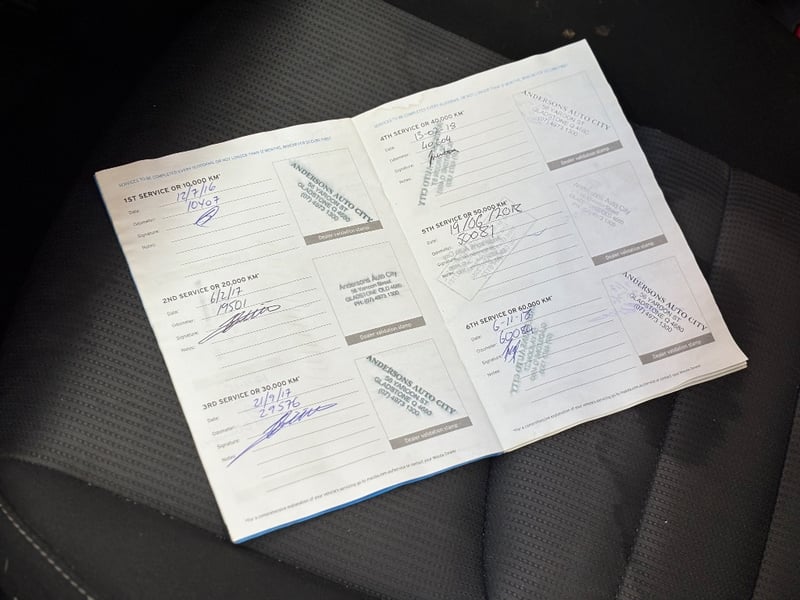 SERVICES TO BE COMPLETED EVERY 10,000KM, OR NOT LONGER THAN 12 MONTHS, WHICHEVER OCCURS FIRST
1ST SERVICE OR 10,000 KM*
Date:
12/7/16
Odometer:
10407
Signature:
Notes:
ANDERSONS AUTO CITY
56 YAROON ST
GLADSTONE Q 4680
(07) 4973 1300
Dealer validation stamp
2ND SERVICE OR 20,000 KM*
Date:
6/2/17
Odometer:
19501
Signature:
Notes:
Andersons Auto City
56 Yaroon Street
GLADSTONE QLD 4680
PH: (07) 4973 1300
Dealer validation stamp
3RD SERVICE OR 30,000 KM*
Date:
21/9/17
Odometer:
29576
Signature:
Notes:
ANDERSONS AUTO CITY
56 YAROON ST
GLADSTONE Q 4680
(07) 4973 1300
Dealer validation stamp
*For a comprehensive explanation of your vehicle's servicing go to mazda.com.au/service or contact your Mazda Dealer.
SERVICES TO BE COMPLETED EVERY 10,000KM, OR NOT LONGER THAN 12 MONTHS, WHICHEVER OCCURS FIRST
4TH SERVICE OR 40,000 KM*
Date:
13-02-18
Odometer:
40204
Signature:
Notes:
ANDERSONS AUTO CITY
56 YAROON ST
GLADSTONE Q 4680
(07) 4973 1300
Dealer validation stamp
5TH SERVICE OR 50,000 KM*
Date:
19/06/2018
Odometer:
50081
Signature:
Notes:
Andersons Auto City
Dealer validation stamp
6TH SERVICE OR 60,000 KM*
Date:
6-11-18
Odometer:
Signature:
Notes:
ANDERSONS AUTO CITY
56 YAROON ST
GLADSTONE Q 4680
(07) 4973 1300
Dealer validation stamp
*For a comprehensive explanation of your vehicle's servicing go to mazda.com.au/service or contact your Mazda Dealer.